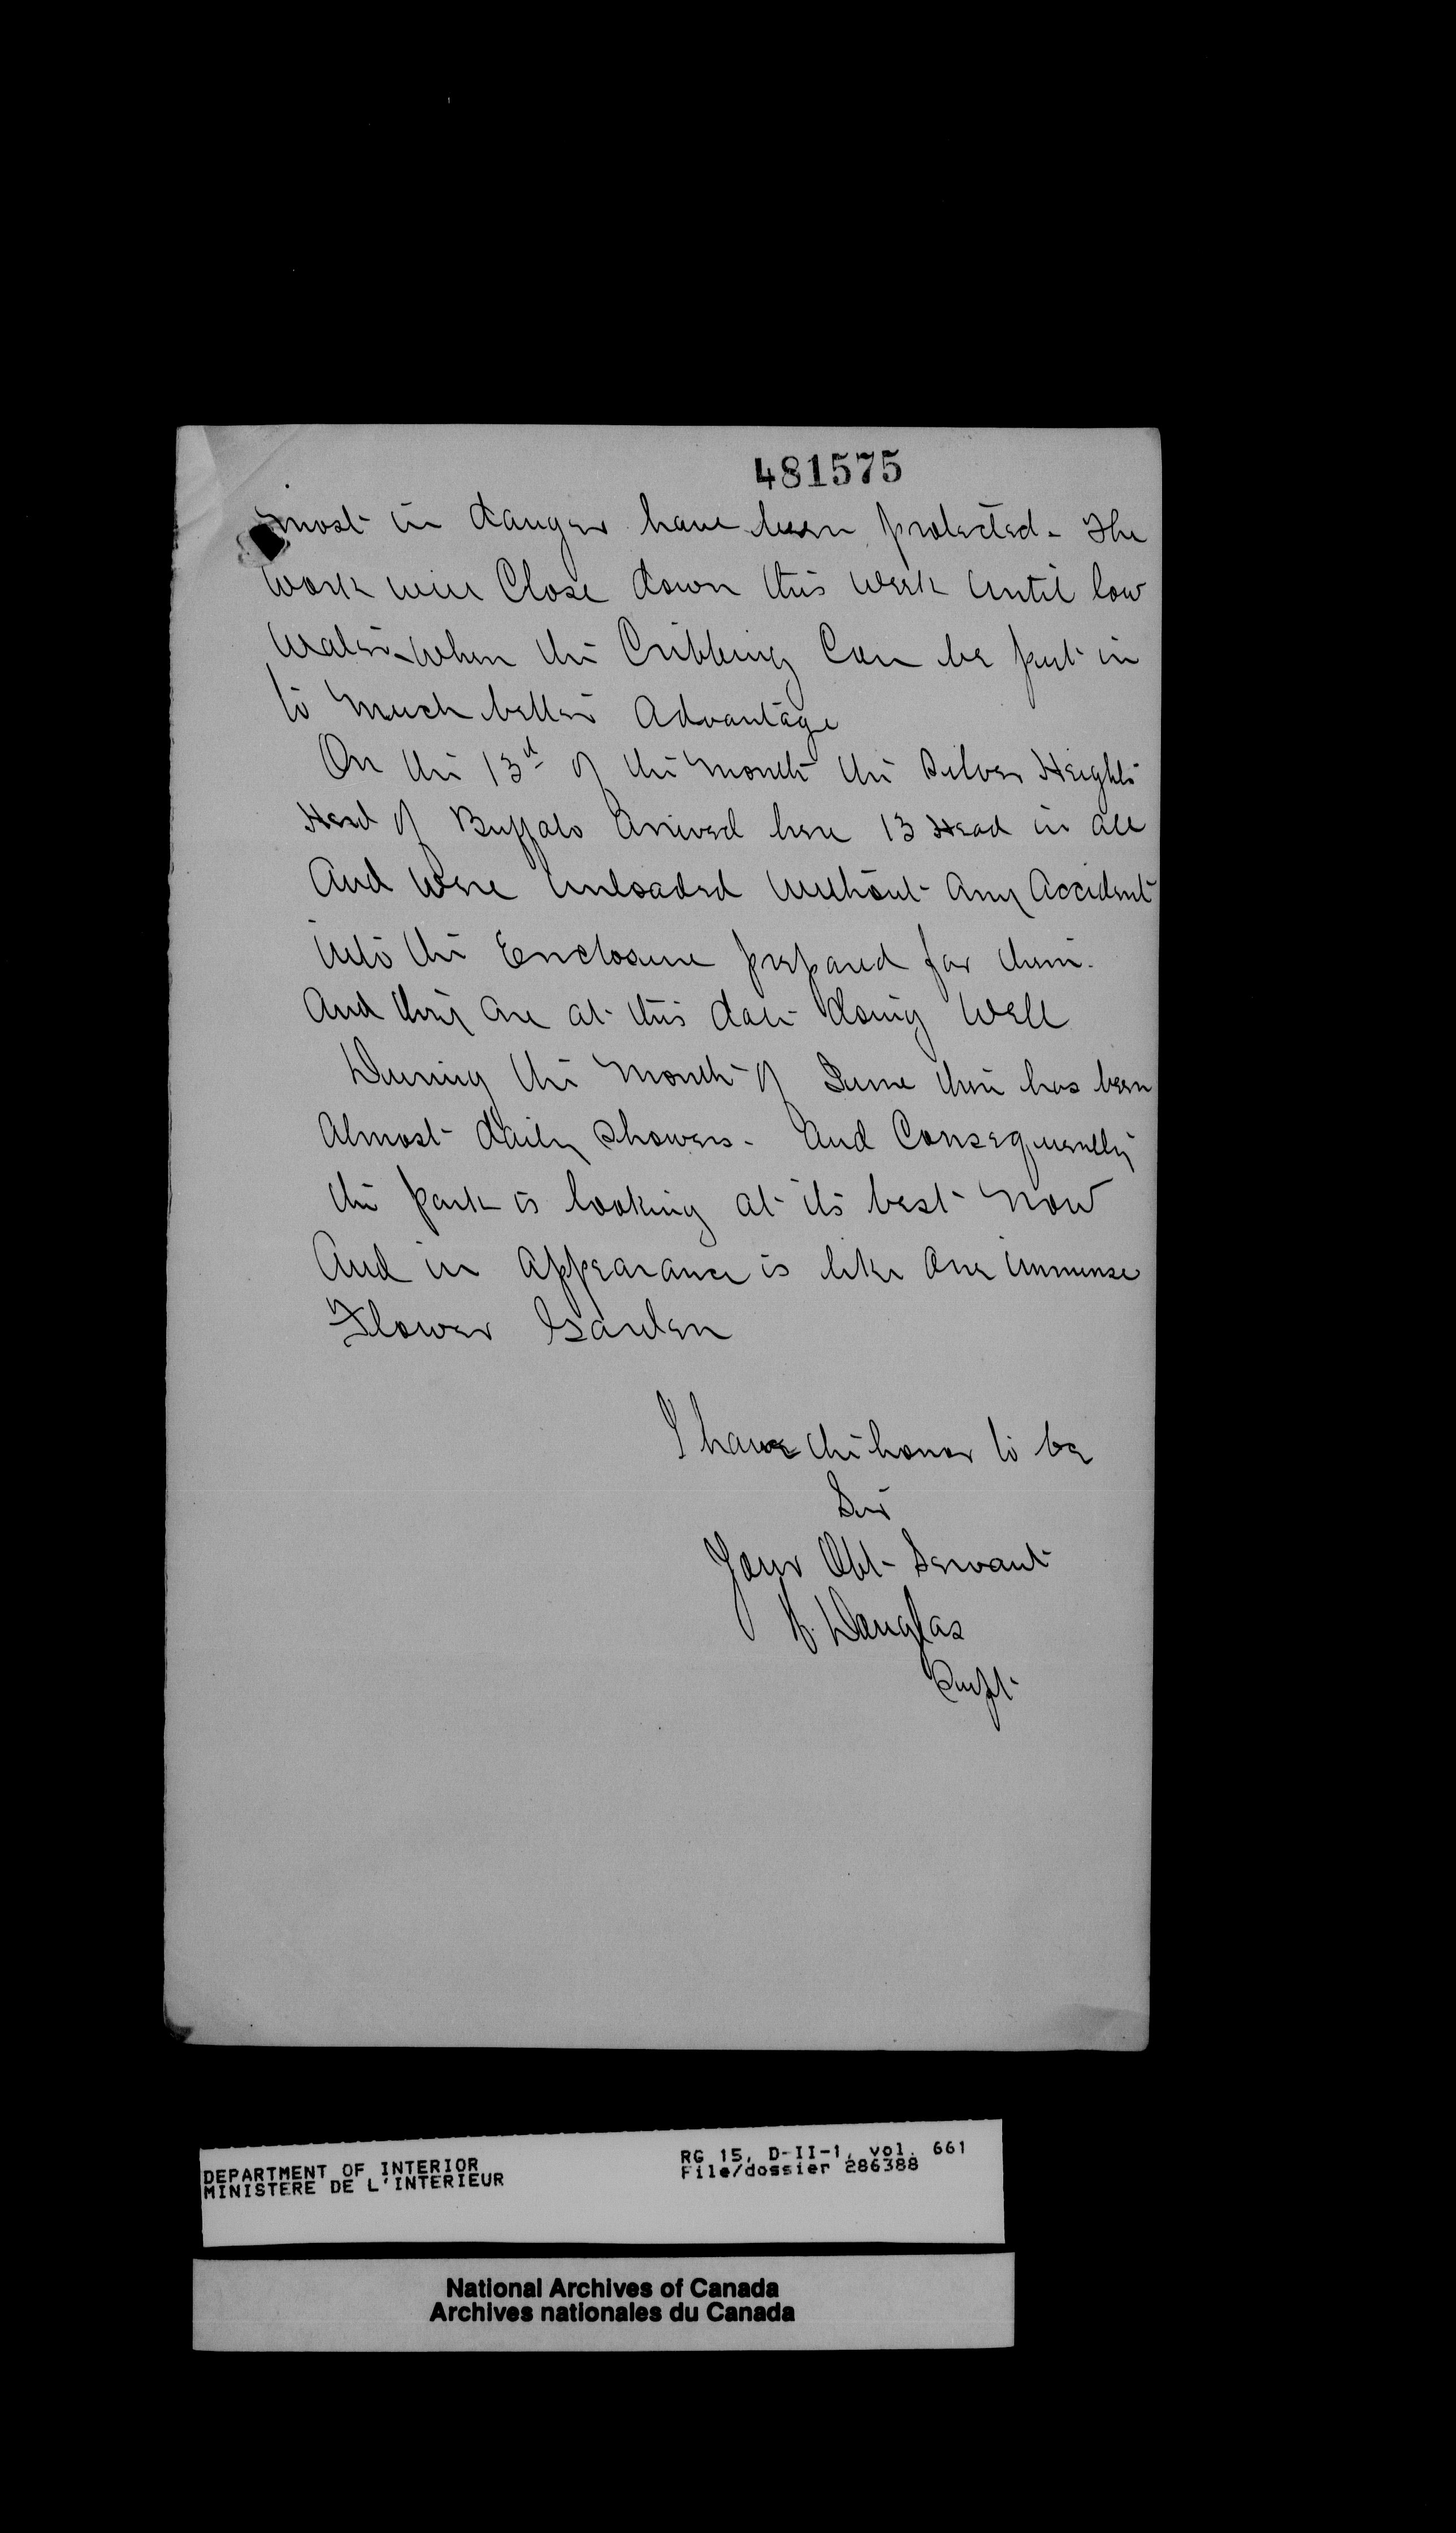 481575
most in danger have been protected - The
work will Close down this week until low
water - when the Cribbing Can be put in
to much better Advantage
On the 13th of the month the Silver Heights
Herd of Buffalo Arrived here 13 Head in all
And were unloaded without any Accident
into the Enclosure prepared for them.
And they are at this date doing well
During the month of June there has been
Almost daily showers - And Consequently
the park is looking at its best now
And in appearance is like one immense
Flower Garden
I have the honor to be
Sir
Your Obt Servant
H. Douglas
Supt
DEPARTMENT OF INTERIOR RG 15, D-II-1, vol. 661
MINISTERE DE L'INTERIEUR File/dossier 286388
National Archives of Canada
Archives nationales du Canada